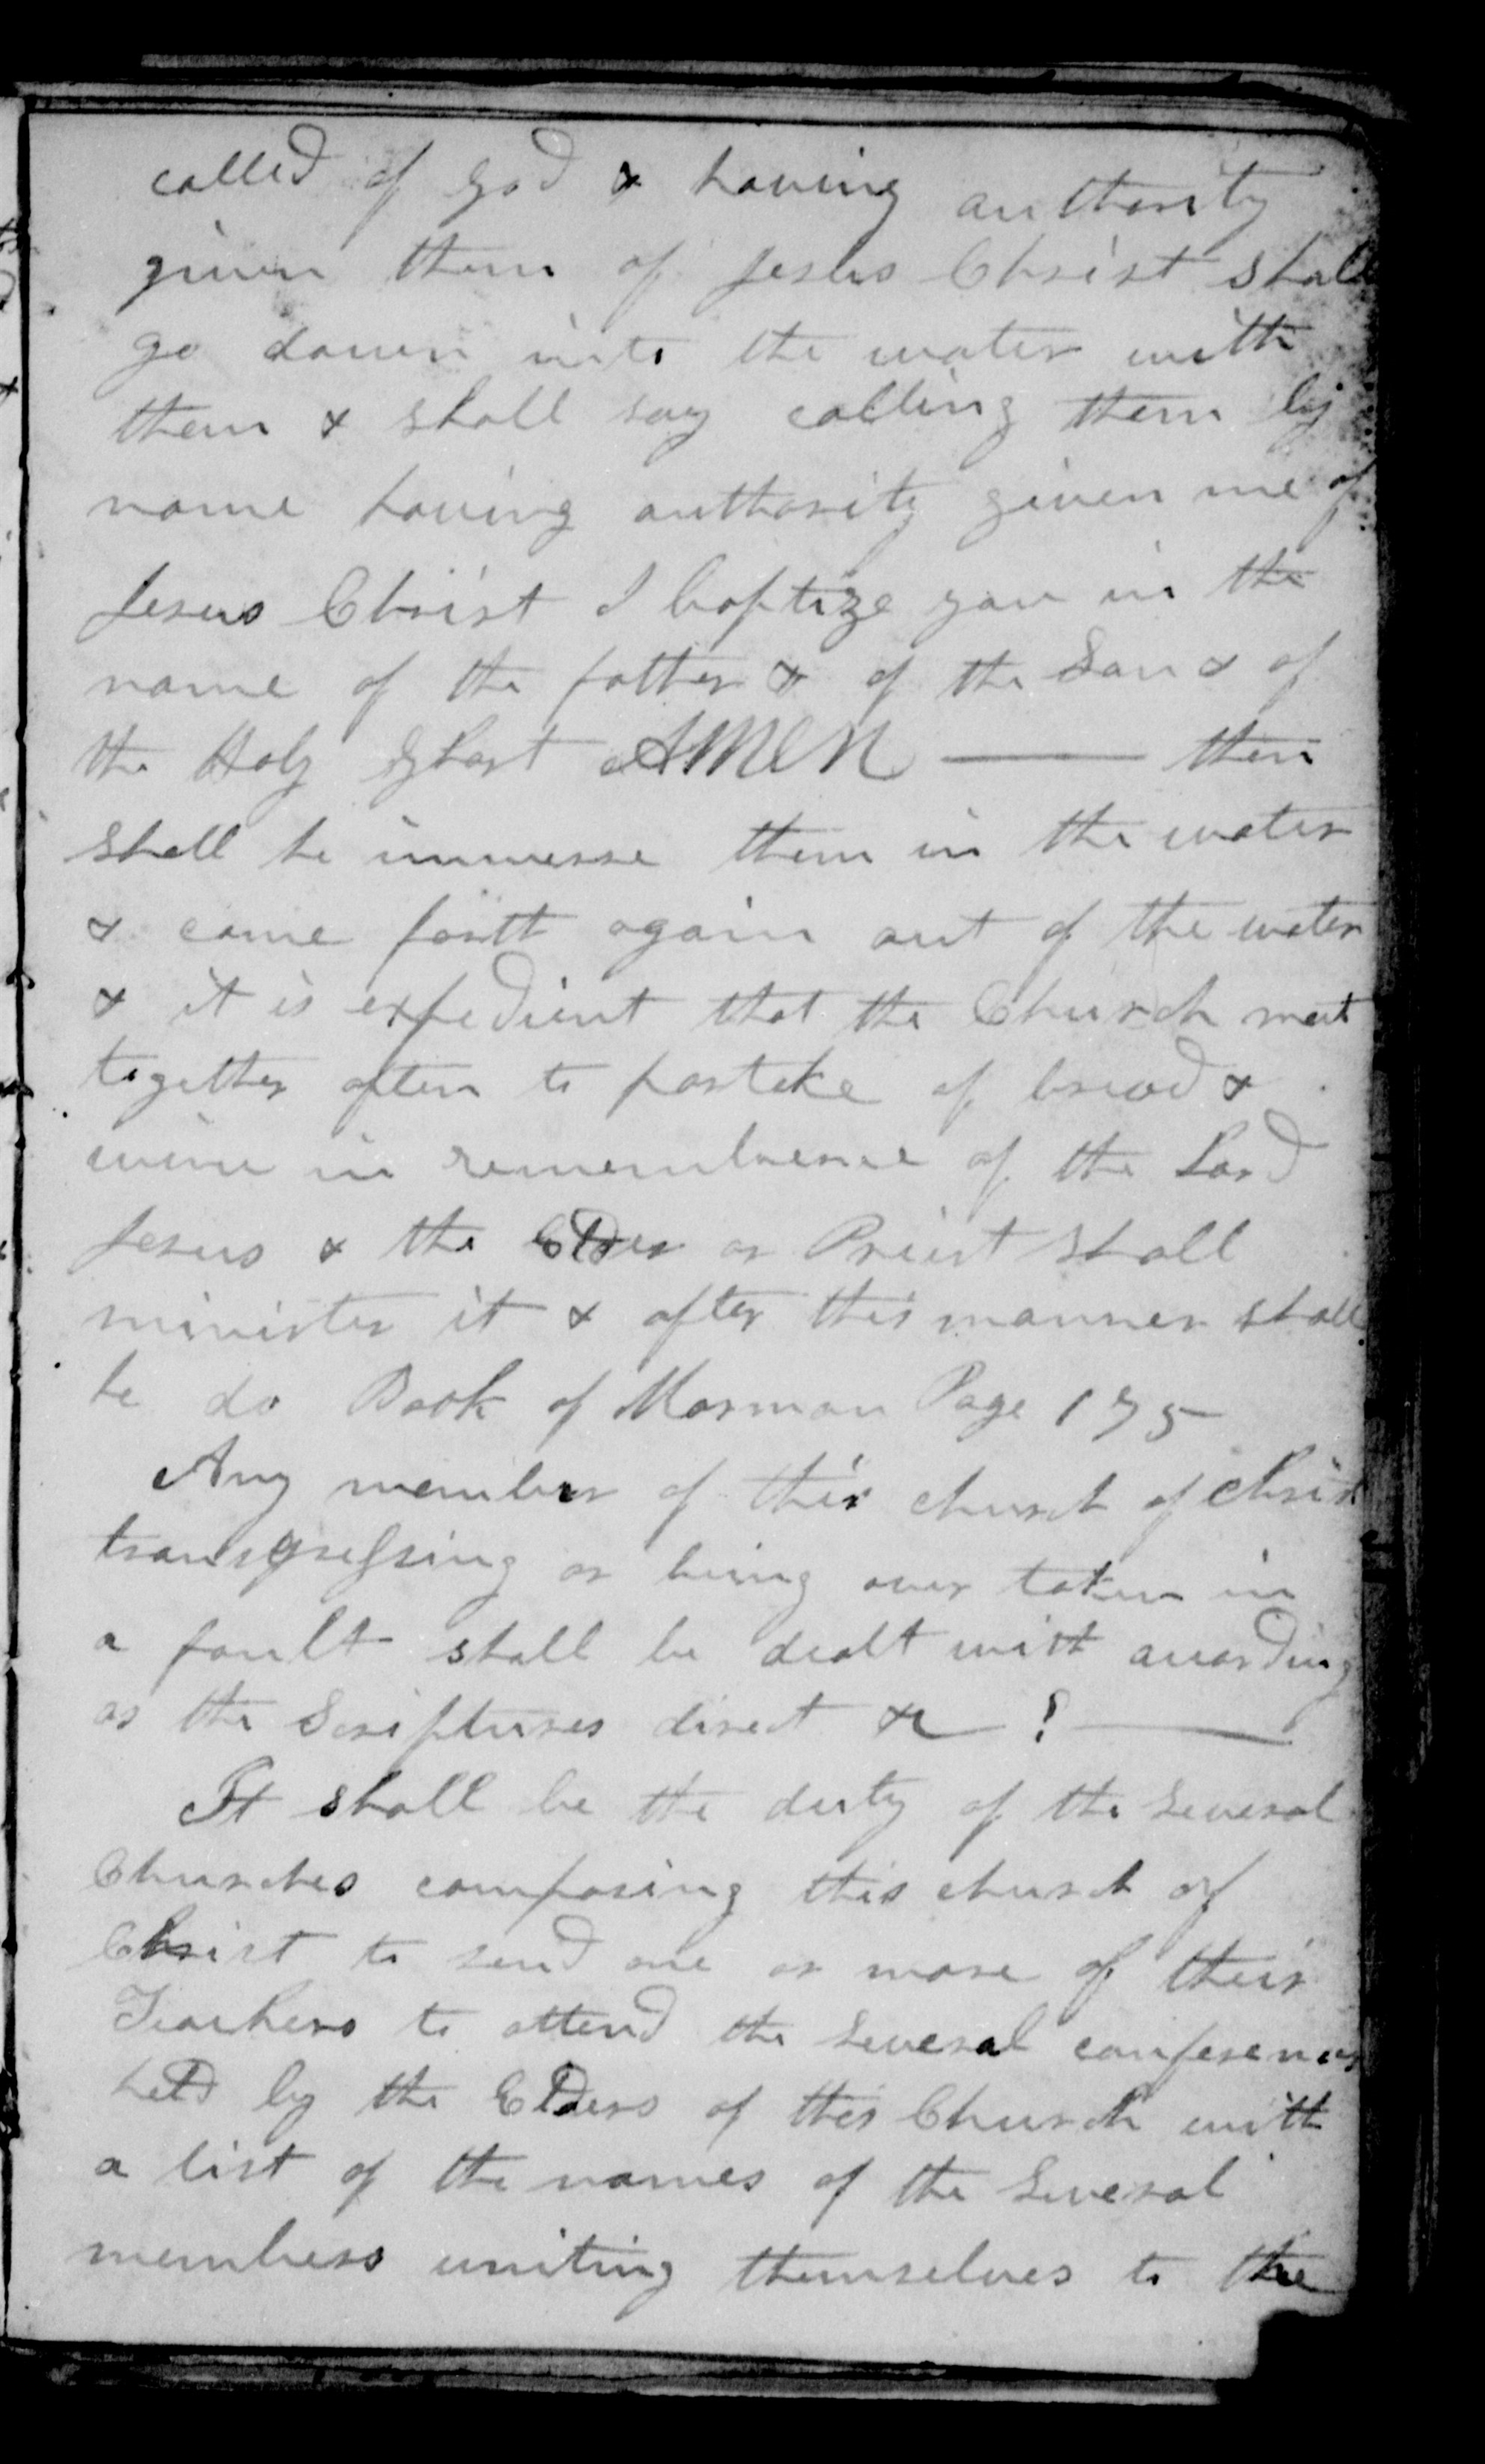 called of God & having authority
given them of Jesus Christ shall
go down into the water with
them & shall say calling them by
name having authority given me of
Jesus Christ I baptize you in the
name of the father & of the Son & of
the Holy Ghost AMEN —— then
shall he immerse them in the water
& come forth again out of the water
& it is expedient that the Church meet
together often to partake of bread &
wine in remembrence of the Lord
Jesus & the Elder or Priest shall
minister it & after this manner shall
he do Book of Mormon Page 175
Any member of this church of Christ
transgressing or being over taken in
a fault shall be dealt with according
as the Scriptures direct &c ! ——
It shall be the duty of the Several
Churches composing this church of
Christ to send one or more of their
Teachers to attend the Several conferences
held by the Elders of this Church with
a list of the names of the Several
members uniting themselves to the